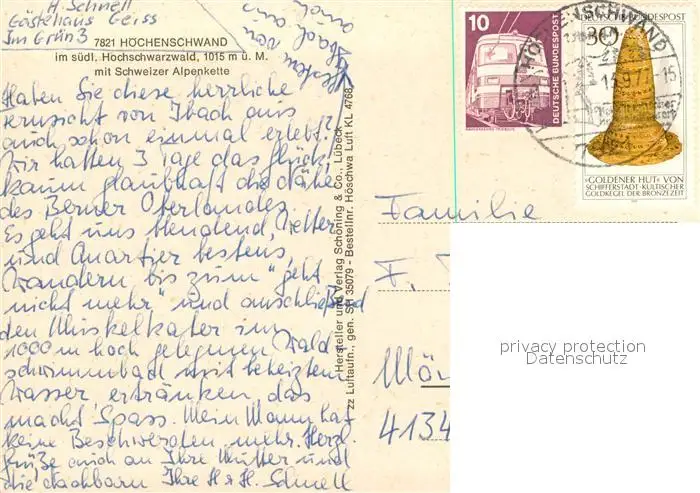 H. Schnell
Gästehaus Geiss
Im Grün 3
7821 HÖCHENSCHWAND
im südl. Hochschwarzwald, 1015 m ü. M.
mit Schweizer Alpenkette
Haben Sie diese herrliche
Fernsicht von Ibach aus
auch schon einmal erlebt?
Wir hatten 3 Tage das Glück,
kaum glaubhaft die Nähe
des Berner Oberlandes.
Es geht uns blendend, Wetter
und Quartier bestens,
Wandern bis zum "geht
nicht mehr" und anschließend
den Muskelkater im
1000 m hoch gelegenen Wald
schwimmbad mit beheiztem
Wasser ertränken, das
macht Spass. Mein Mann hat
keine Beschwerden mehr. Herzl.
Grüße auch an Ihre Mutter und
die Nachbarn Ihre H + H. Schnell
Hersteller und Verlag Schöning & Co., Lübeck
zz Luftaufn., gen. SH 35079 - Bestellnr. Höschwa Luft KL 4768
10
DEUTSCHE BUNDESPOST
DEUTSCHE BUNDESPOST
30
HÖCHENSCHWAND
»GOLDENER HUT« VON
SCHIFFERSTADT · KULTISCHER
GOLDKEGEL DER BRONZEZEIT
Familie
F.
Mön
4134
privacy protection
Datenschutz